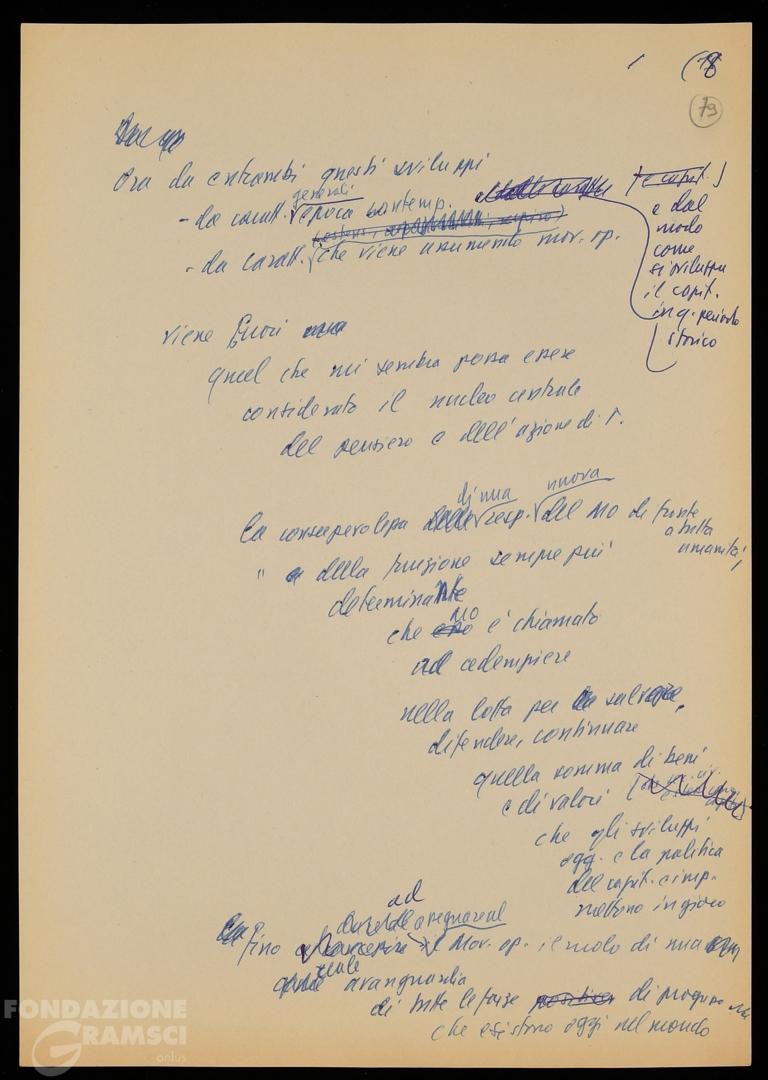 (18
79
Ora da entrambi questi sviluppi
generali
- da caratt. epoca contemp.
- da caratt. che viene assumendo mov. op.
[e capit.]
e dal
modo
come
si sviluppa
il capit.
in q. periodo
storico
viene fuori
quel che mi sembra possa essere
considerato il nucleo centrale
del pensiero e dell'azione di T.
di una nuova
la consapevolezza resp. del MO di fronte
a tutta
umanità,
" della funzione sempre più
determinante
MO
che è chiamato
ad adempiere
nella lotta per salvare,
difendere, continuare
quella somma di beni
e di valori
che gli sviluppi
ogg. e la politica
del capit. e imp.
mettono in gioco
ad
fino il Mov. op. il ruolo di una
quale avanguardia
di tutte le forze positive di progresso
che esistono oggi nel mondo
FONDAZIONE
GRAMSCI
onlus